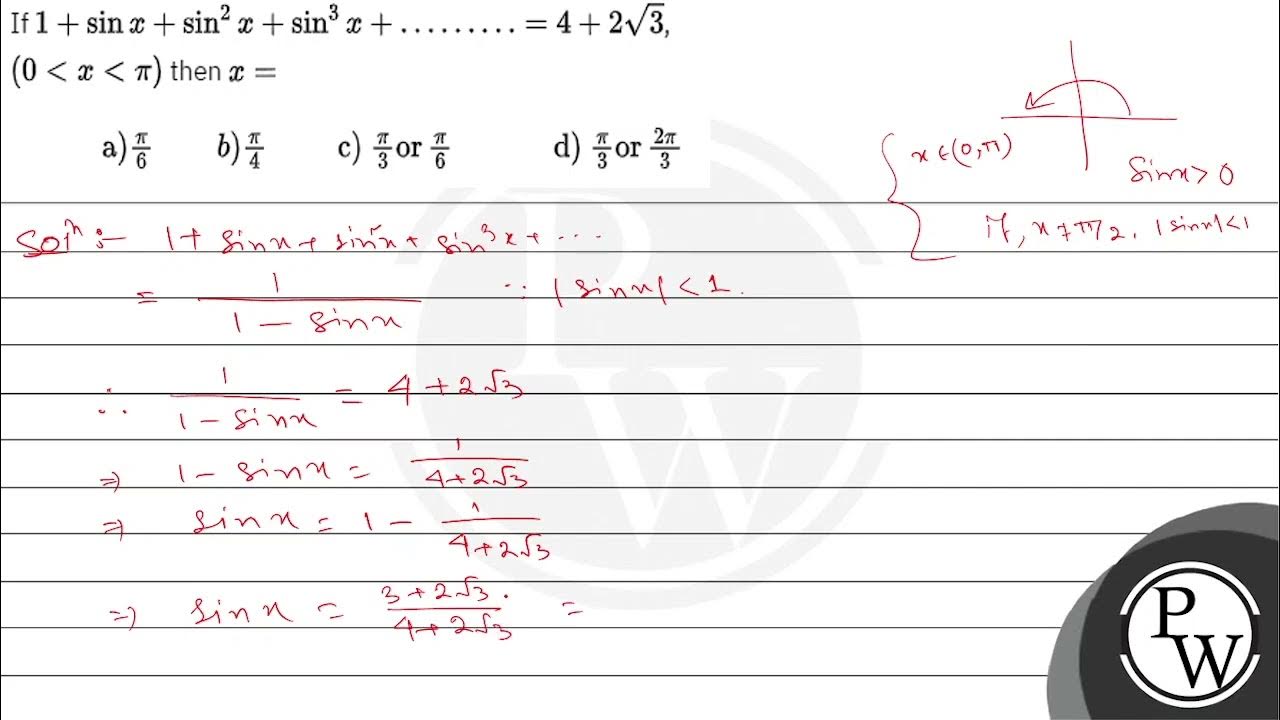 If 1 + sin x + sin² x + sin³ x + ......... = 4 + 2√3,
(0 < x < π) then x =
a) π/6 b) π/4 c) π/3 or π/6 d) π/3 or 2π/3
x ∈ (0, π)
sinx > 0
if, x ≠ π/2, |sinx| < 1
Solⁿ :- 1 + sinx + sin²x + sin³x + ...
= 1/(1 - sinx) ∵ |sinx| < 1.
∴ 1/(1 - sinx) = 4 + 2√3
⇒ 1 - sinx = 1/(4+2√3)
⇒ sinx = 1 - 1/(4+2√3)
⇒ sinx = (3+2√3)/(4+2√3) =
P
W
P
W